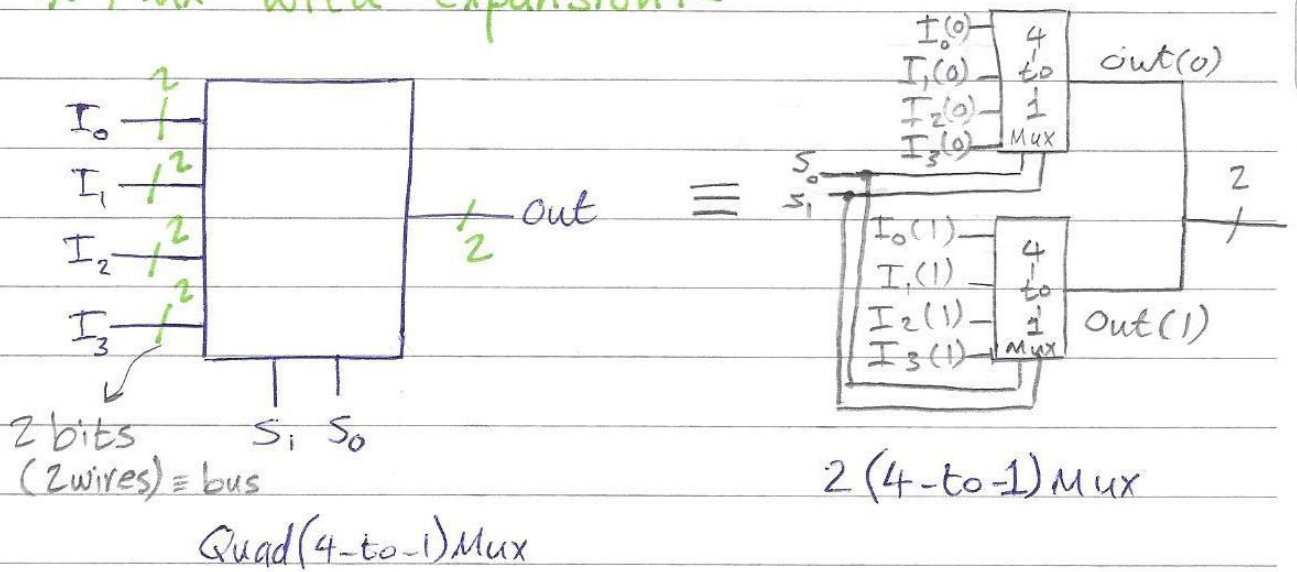 Mux with expansion:
2
I₀
2
I₁
2
I₂
2
I₃
2
out
S₁ S₀
2 bits
(2wires) ≡ bus
Quad(4-to-1)Mux
≡
I₀(0)
I₁(0)
I₂(0)
I₃(0)
4
to
1
Mux
out(0)
S₀
S₁
2
I₀(1)
I₁(1)
I₂(1)
I₃(1)
4
to
1
Mux
Out(1)
2(4-to-1)Mux